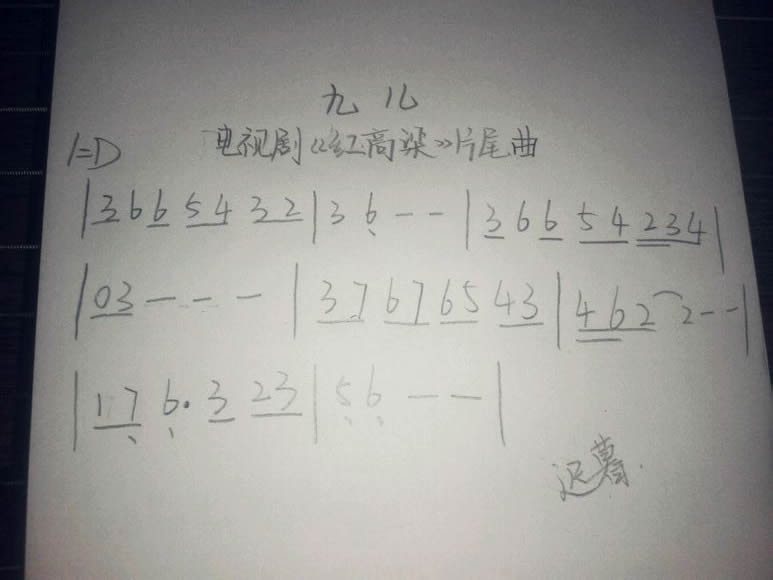 九儿
1=D 电视剧《红高粱》片尾曲
|366 54 32|36--|366 54 234|
|03---|37 67 65 43|462 2--|
|176·3 23|56--|
迟暮